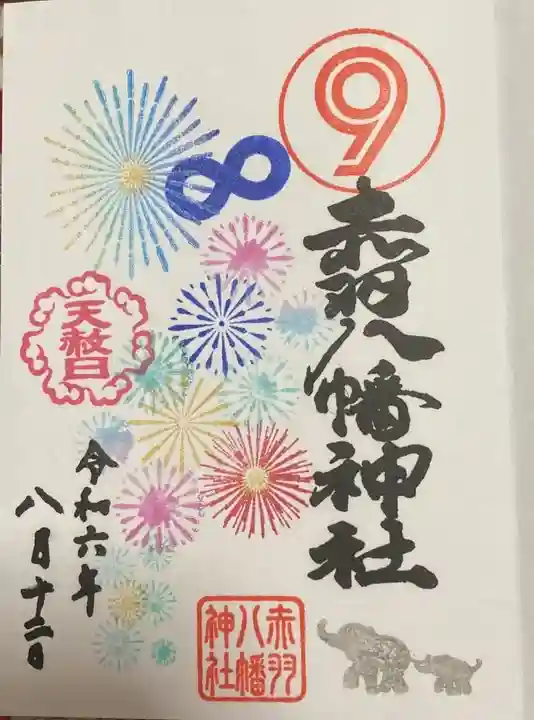 ⑨
8
赤羽八幡神社
天赦日
令和六年
八月十二日
赤羽
八幡
神社